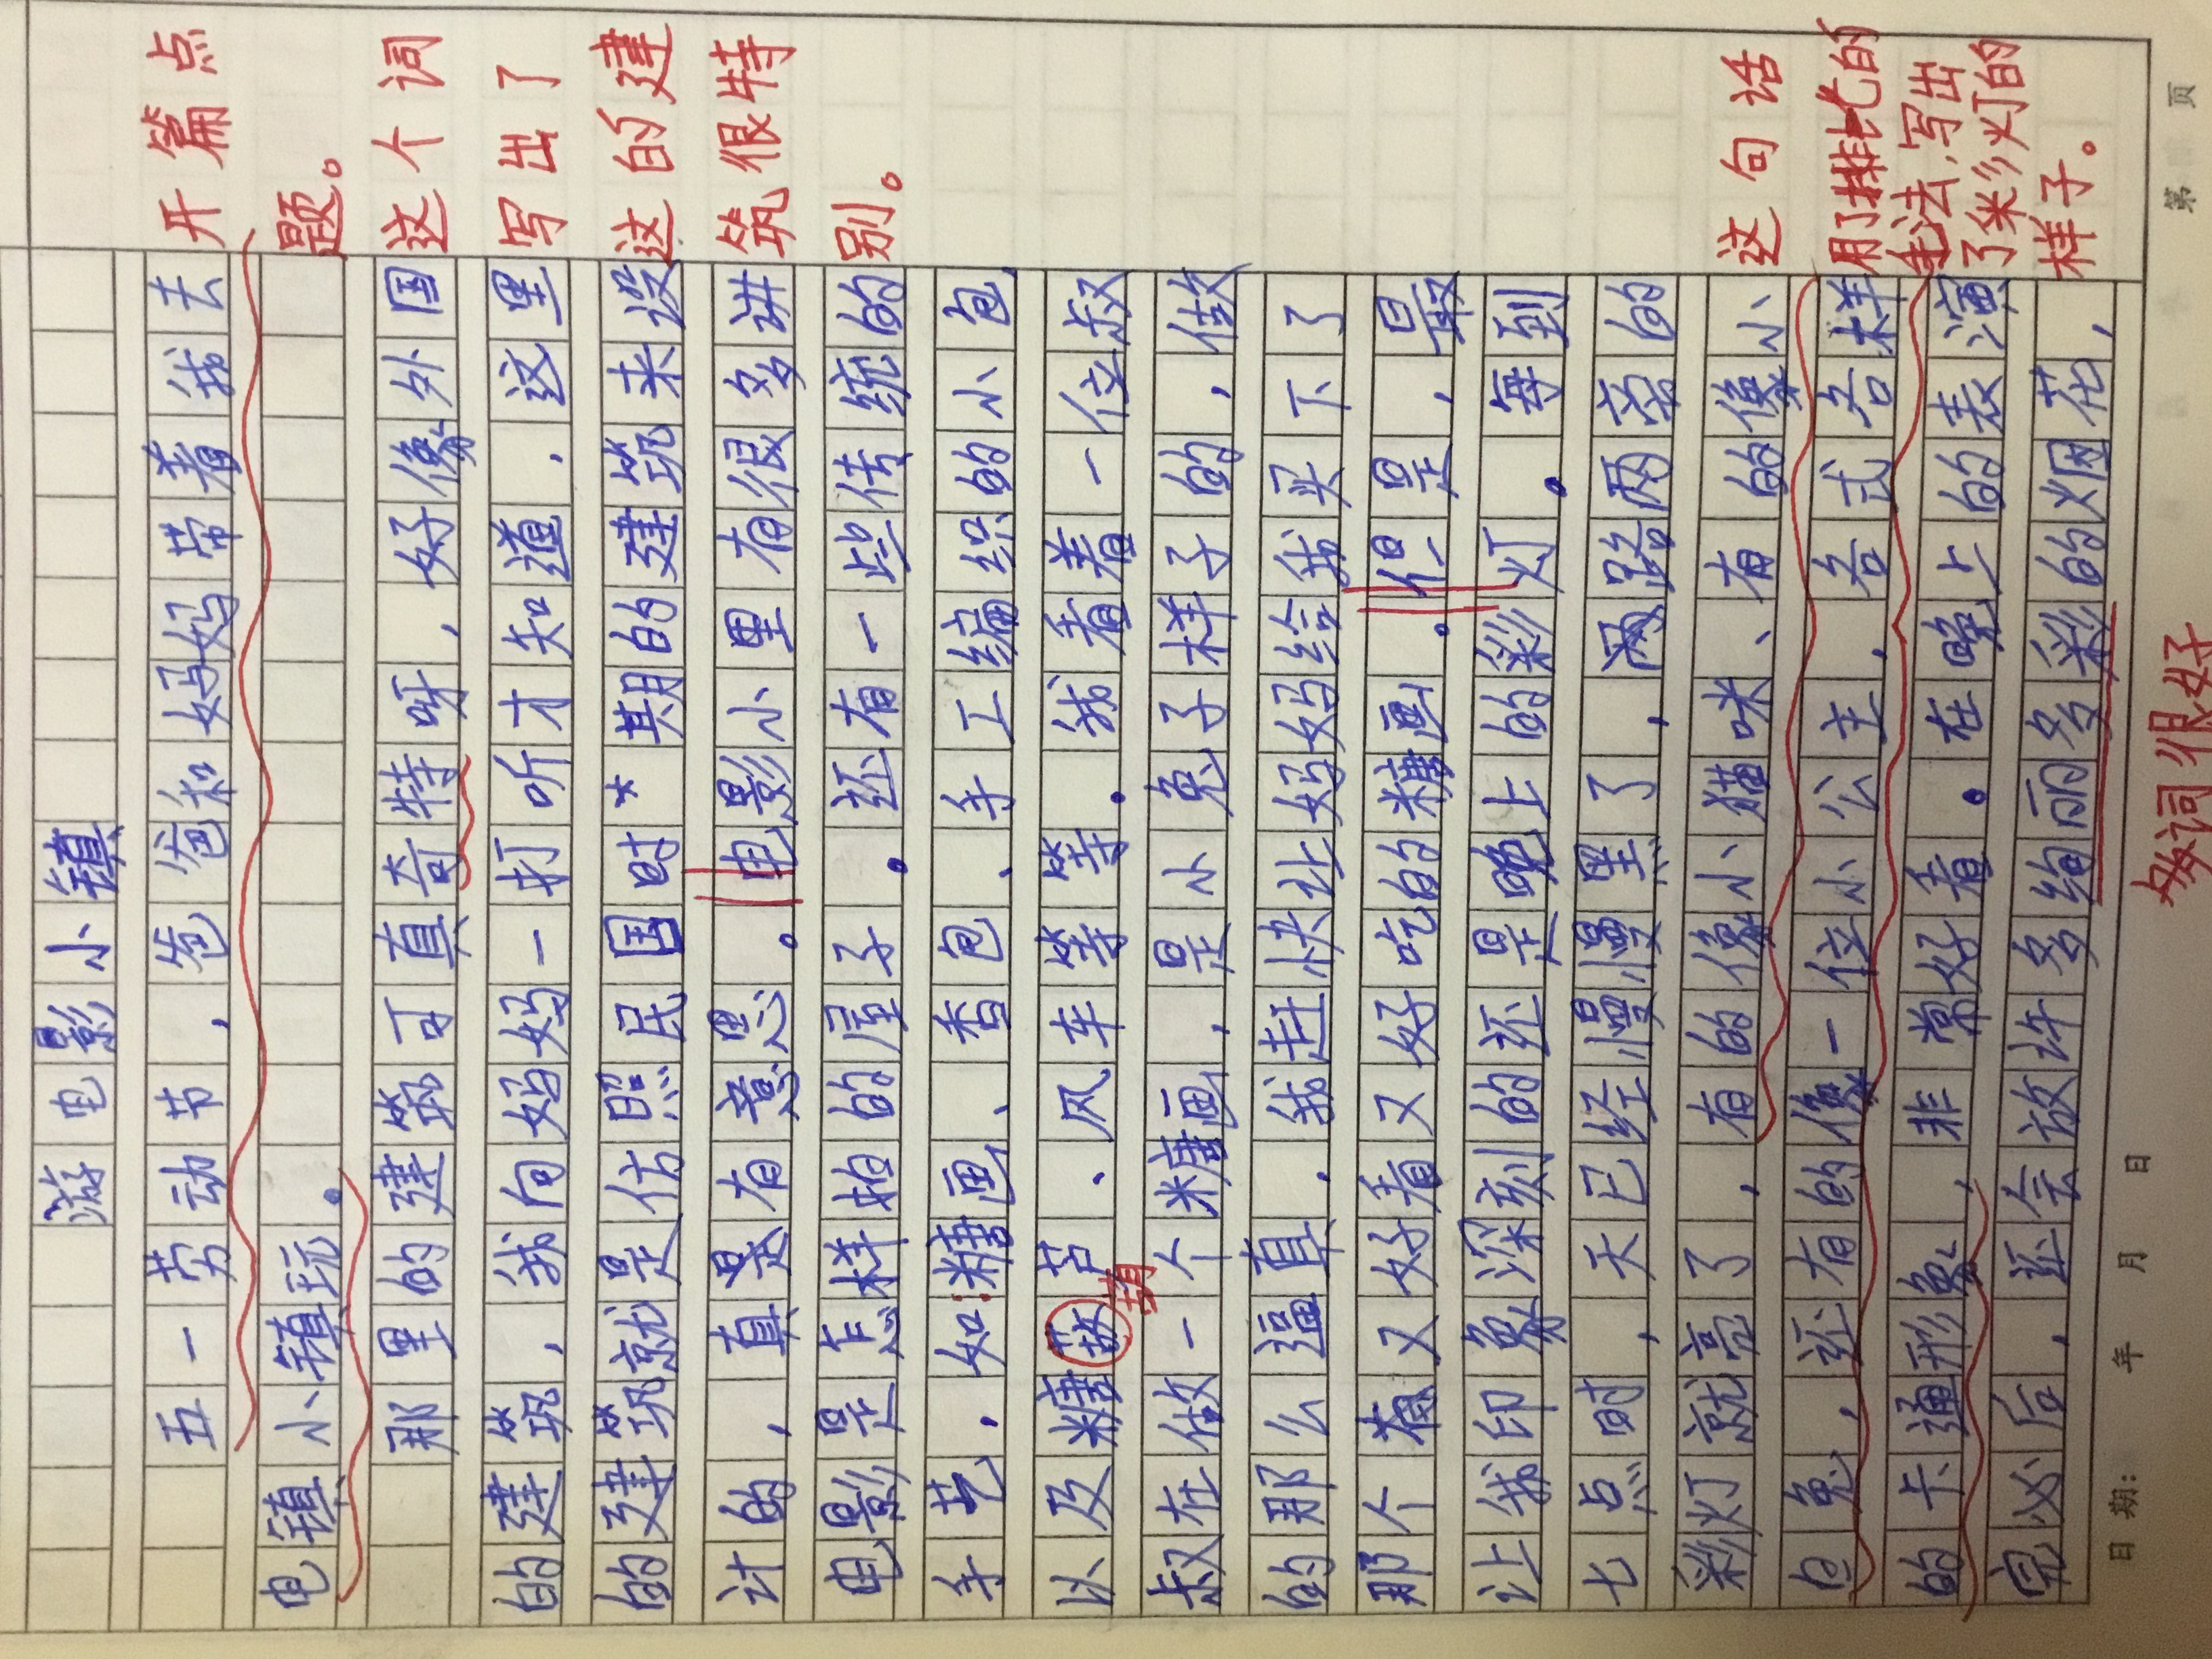 游电影小镇
五一劳动节,爸爸和妈妈带着我去
电镇小镇玩。
那里的建筑可真奇特呀,好像外国
的建筑,我向妈妈一打听才知道,这里
的建筑就是仿照民国时*期的建筑来设
计的,真是有意思。电影小里有很多讲
电影是怎样拍的屋子。还有一些传统的
手艺,如:糖画、香包、手工编织的小包
以及糖芦、风车等等。我看着一位叔
葫
叔在做一个糖画,是小兔子样子的,做
的那么逼直,我赶快让妈妈给我买下了
那个看又好看又好吃的糖画。但是,最
让我印象深刻的还是晚上的彩灯。每到
七点时,天已经慢慢黑了,路两旁的
彩灯就亮了,有的像小猫咪、有的像小
白兔,还有的像一位小公主,各式各样
的卡通形象,非常好看。在晚上的表演
完必后,还会放许多绚丽多彩的烟花,
开篇点
题。
这个词
写出了
这的建
筑很特
别。
这句话
用了排比的
写法,写出
了彩灯的
样子。
词很好
日期: 年 月 日
第 页